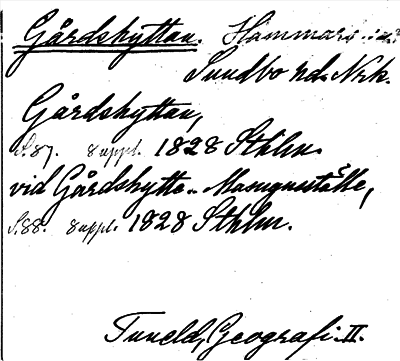 Gårdshyttan. Hammars sn
Sundbo hd. Nrk.
Gårdshyttan,
S.87. suppl. 1828 Sthlm.
vid Gårdshytte- Masugnställe,
S.88. suppl. 1828 Sthlm.
Tuneld, Geografi. II.